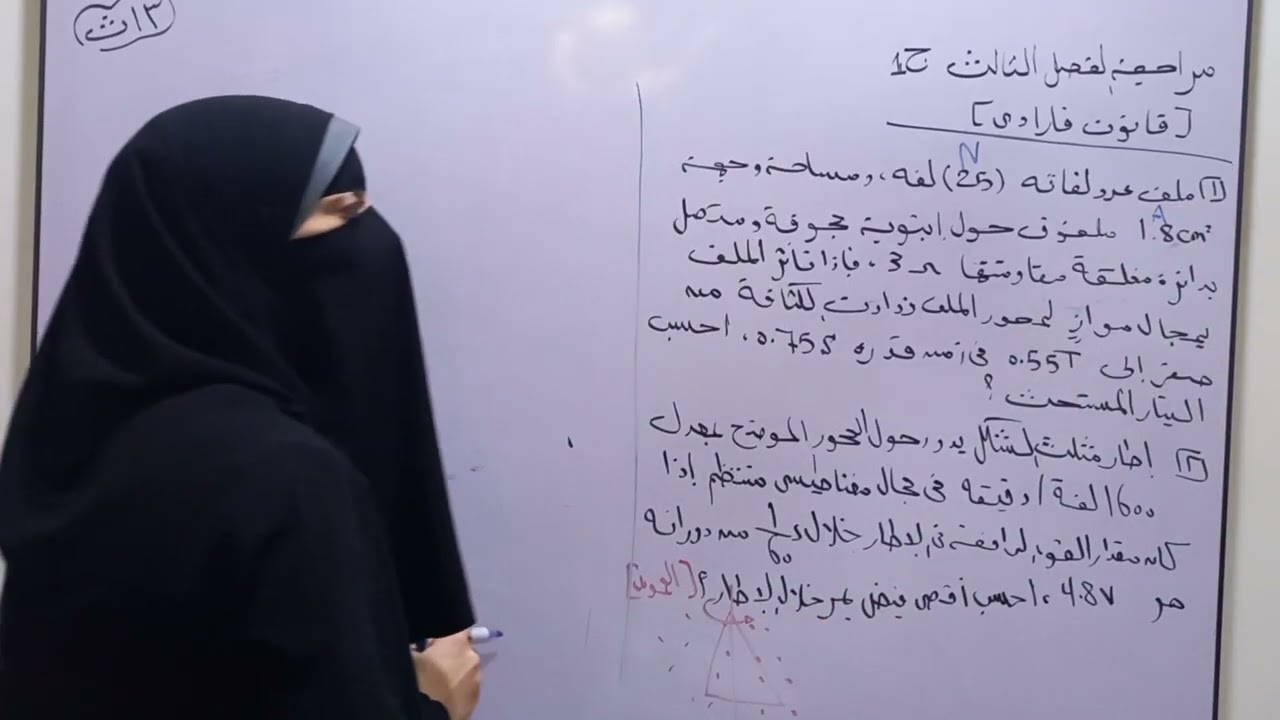 ٣/ث
مراجعة لفصل الثالث ح1
[قانون فاراداى]
[١] ملف عدد لفاته (25) لفه، ومساحة وجهة
N
A
1.8cm² ملفوف حول إنبوبة مجوفة ومتصل
بدائرة مغلقة مقاومتها 3Ω، فإذا تأثر الملف
بمجال موازٍ لمحور الملف زادت لكثافة من
صفر إلى 0.55T فى زمن قدره 0.75s، احسب
التيار المستحث؟
[٢] إطار مثلث لشكل يدور حول المحور الموضح بمعدل
1600 لفة / دقيقه فى مجال مغناطيسى منتظم إذا
كان مقدار القوه الدافعة فى الإطار خلال 1/60 s من دورانه
هو 4.8V، احسب أقصى فيض يمر خلال الإطار؟